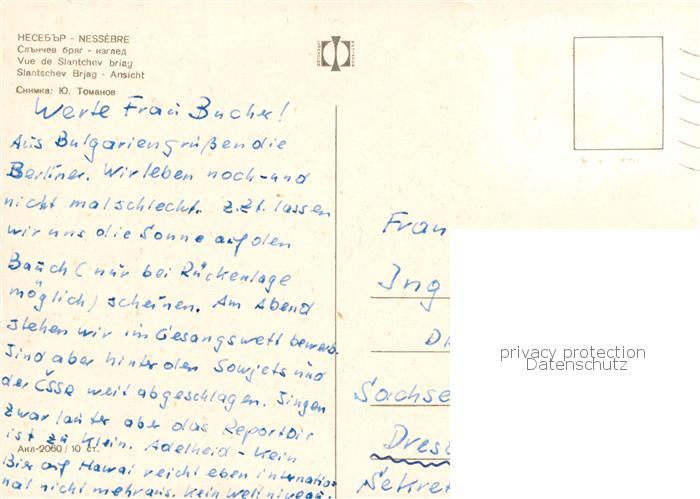 НЕСЕБЪР - NESSÈBRE
Слънчев бряг - изглед
Vue de Slantchev briag
Slantschev Brjag - Ansicht
Снимка: Ю. Томанов
Werte Frau Bucher!
Aus Bulgarien grüßen die
Berliner. Wir leben noch - und
nicht mal schlecht. Z.Zt. lassen
wir uns die Sonne auf den
Bauch (nur bei Rückenlage
möglich) scheinen. Am Abend
stehen wir im Gesangswettbewerb.
Sind aber hinter den Sowjets und
der ČSSR weit abgeschlagen. Singen
zwar lauter aber das Repertoir
ist zu klein. Adelheid - Kein
Bier auf Hawai reicht eben internatio-
nal nicht mehr aus. Kein Weltniveau.
Акл-2060/10 ст.
Frau
Ing
Sachse
Dres
Sekret
privacy protection
Datenschutz